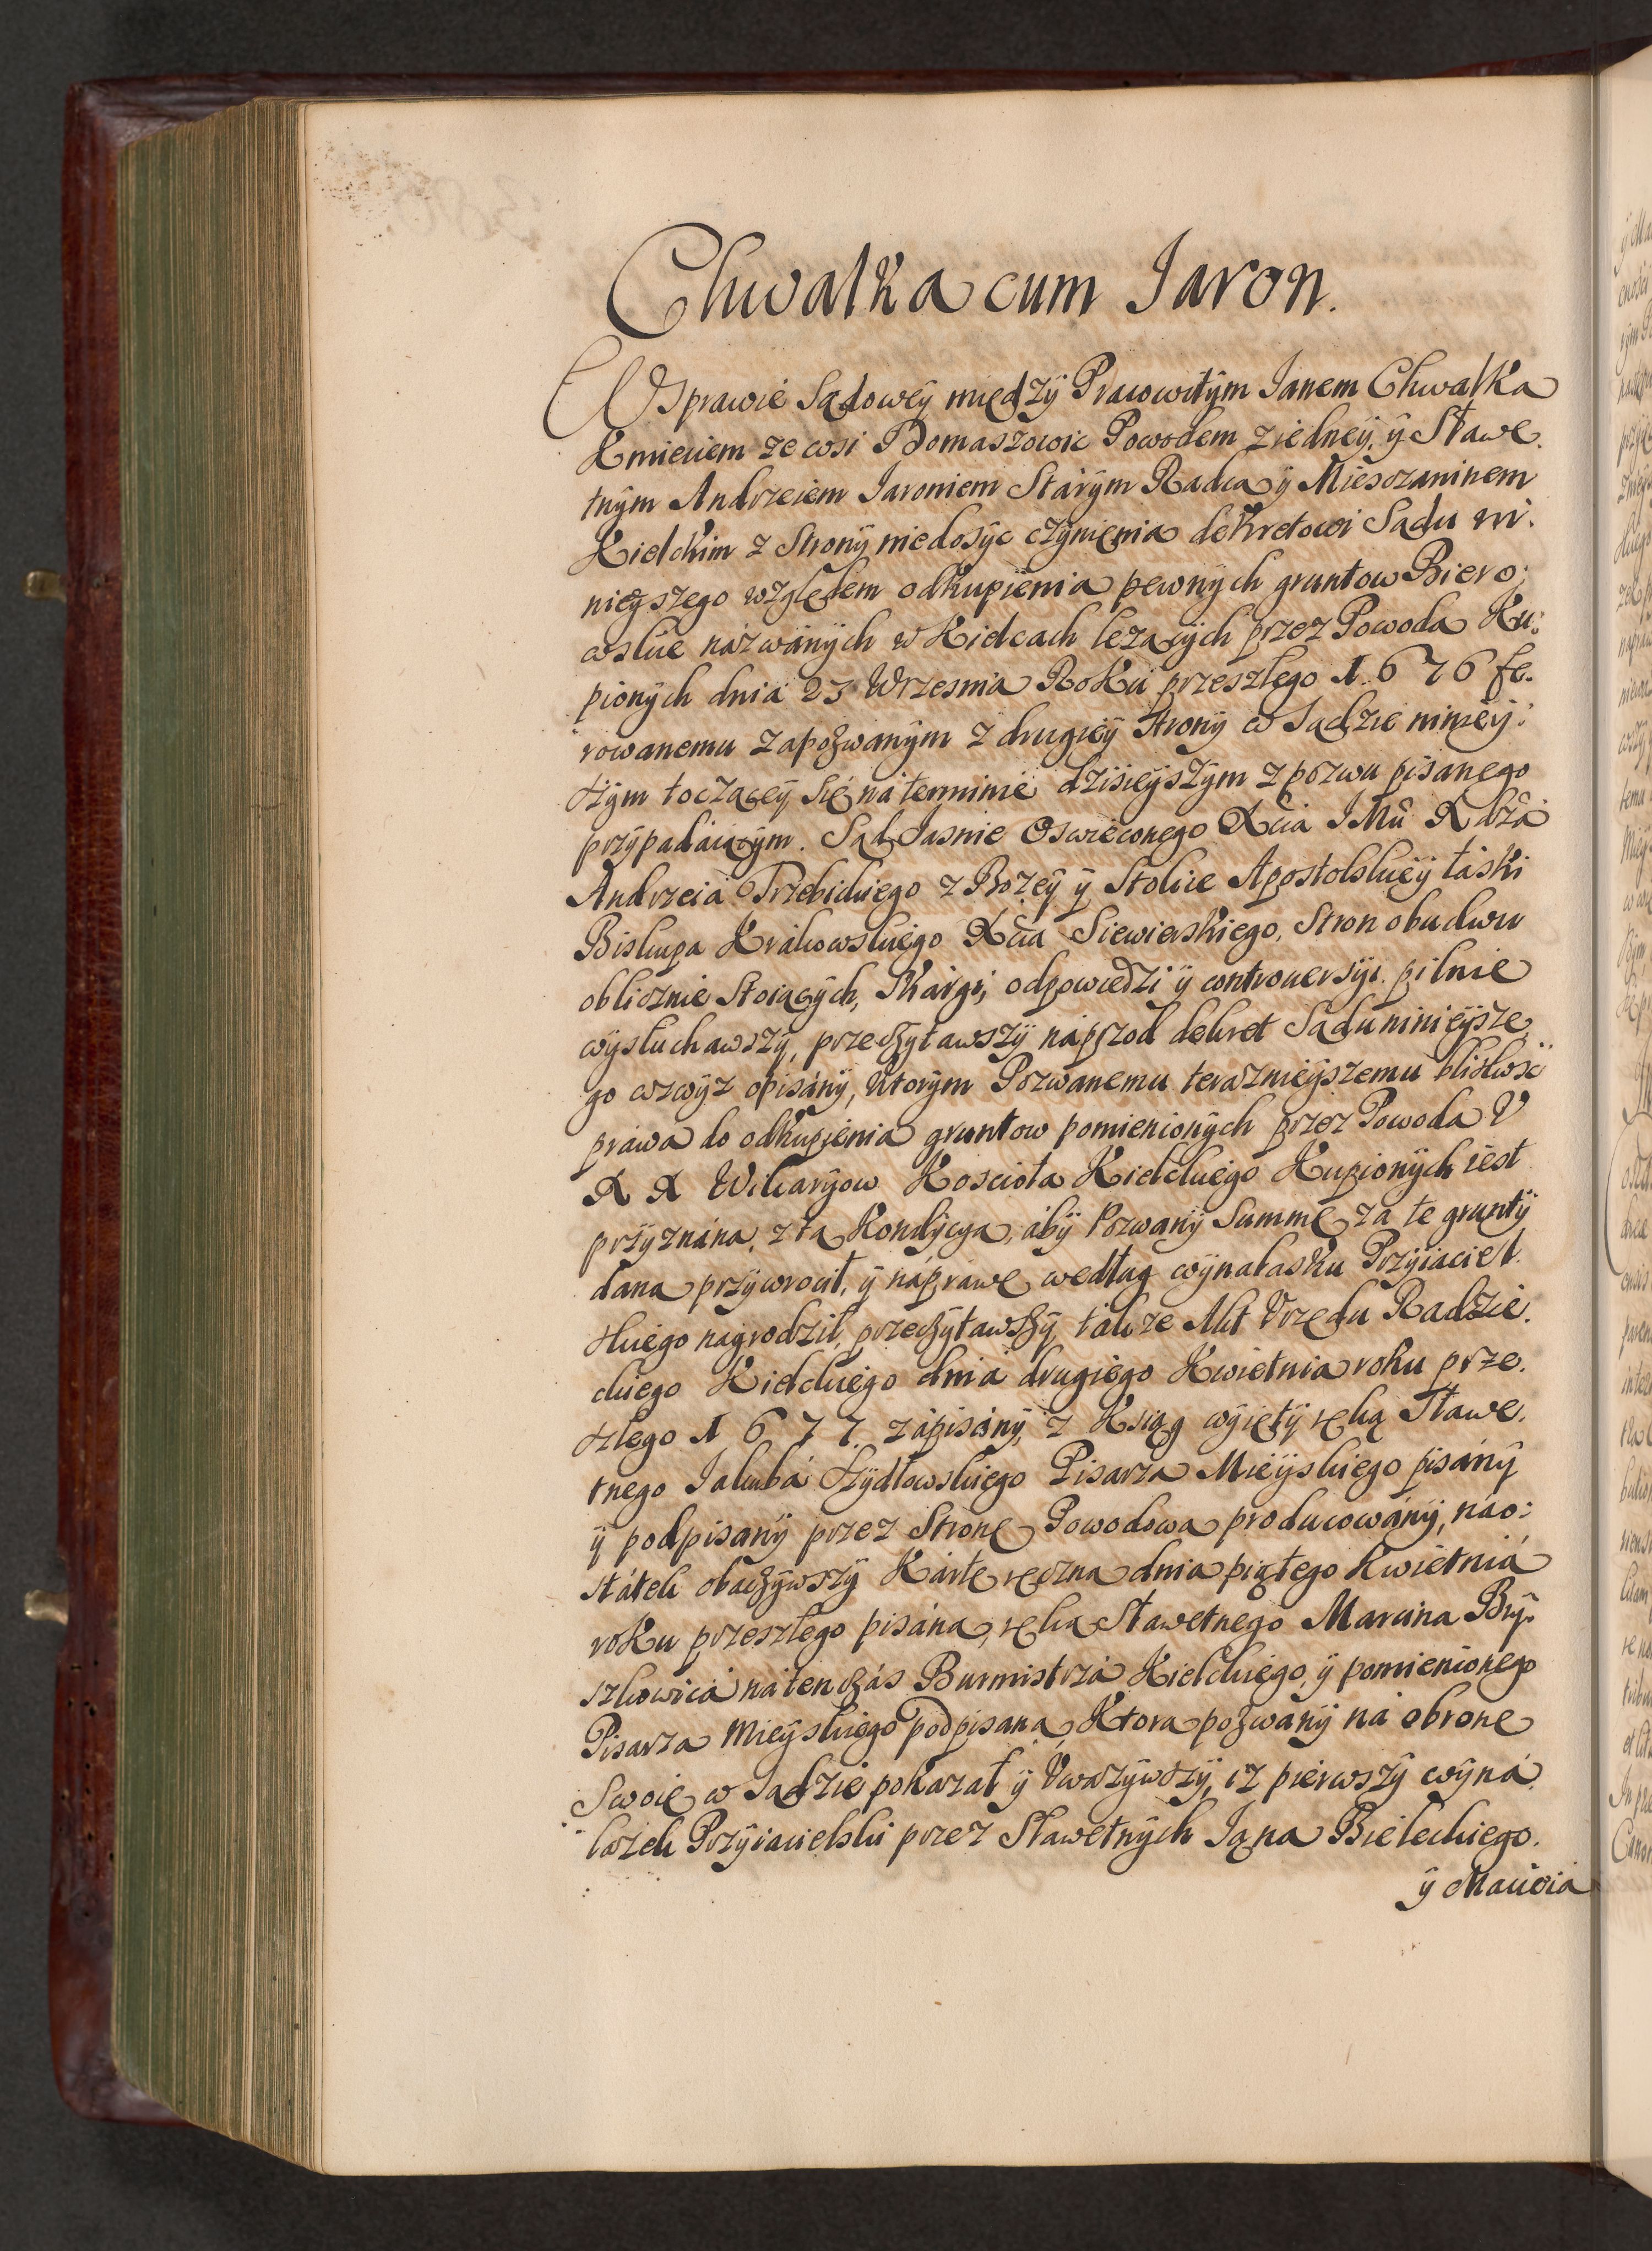 Chwałka cum Jaron.
W Sprawie Sądowey między Pracowitym Janem Chwałką
Kmieciem ze wsi Domaszowic Powodem z iedney, y Sławe.
tnym Andrzeiem Jaroniem Starym Radcą y Mieszczaninem
Kielckim z Strony niedosyc czynienia dekretowi Sądu ni.
nieyszego względem odkupienia pewnych gruntow Biero;
wskie názwánych w Kielcach leżących przez Powoda Ku:
pionych dnia 23 Wrzesnia Roku przeszłego 1676 fe.
rowanemu zapozwanym z drugiey Strony w Sądzie ninieÿ:
szym toczącey się ná terminie dzisieyszym z pozwu pisanego
przypadáiącym. Sąd Jasnie Oswieconego Xcia JMci Xdza
Andrzeia Trzebickiego z Bożey y Stolice Apostolskiey łaski
Biskupa Krákowskiego Xcia Siewierskiego, Stron obudwu
oblicznie Stoiących, Skárgi, odpowiedzi y controuersyi pilnie
wysłuchawszy, przeczytawszy náprzod dekret Sądu ninieysze
go wzwyż opisány, ktorym Pozwanemu terazniejszemu bliskosc
práwa do odkupienia gruntow pomienionych przez Powoda V
X X Wikaryow Koscioła Kielckiego Kupionych iest
przyznána, z tą Kondycyą, áby Pozwany Summę zá te grunty
daną przywrocił, y nápráwę według wynalasku Przyiaciel
skiego nagrodził, przeczytawszy także Akt Vrzędu Radzie.
ckiego Kielckiego dnia drugiego Kwietnia roku prze.
szłego 1677 zápisány, z Ksiąg wyięty ręką Sławe.
tnego Jakubá Szydłowskiego Pisarza Mieyskiego pisány
y podpisany przez Stronę Powodową producowány, náo:
státek obaczywszy Kártę ręczną dnia piątego Kwietniá
roku przeszłego pisáną, ręką Sławetnego Marcina Bry.
szkowicá náten czás Burmistrzá Kielckiego, y pomienionego
Pisarza Mieyskiego podpisaną, Ktorą pozwany ná obronę
Swoię w Sądzie pokazał y Vważywszy, iż pierwszy wyná
lazek Przyiacielski przez Sławetnych Jana Bieleckiego.
y Macieia